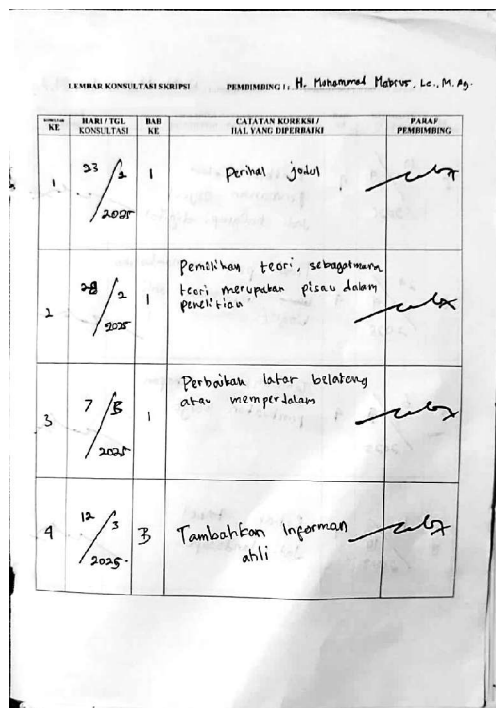 LEMBAR KONSULTASI SKRIPSI PEMBIMBING I : H. Mohammad Mabrur, Lc., M. Ag.
KE HARI / TGL KONSULTASI BAB KE CATATAN KOREKSI / HAL YANG DIPERBAIKI PARAF PEMBIMBING
1 23/2 2025 1 Perihal judul
2 28/2 2025 1 Pemilihan teori, sebagaimana
teori merupakan pisau dalam
penelitian
3 7/3 2025 1 Perbaikan latar belakang
atau memperdalam
4 12/3 2025 3 Tambahkan Informan
ahli